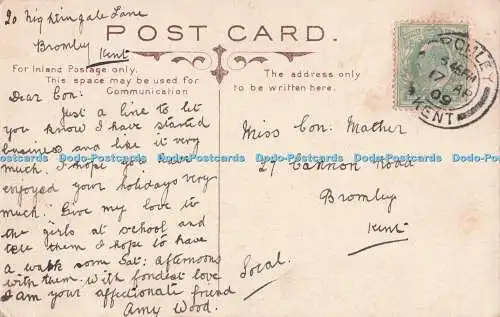 20 Nightingale Lane
Bromley
Kent
POST CARD.
For Inland Postage only.
This space may be used for
Communication
The address only
to be written here.
Dear Con:
Just a line to let
you know I have started
business and like it very
much. I hope you have
enjoyed your holidays very
much. Give my love to
the girls at school and
tell them I hope to have
a walk some Sat: afternoons
with them. With fondest love
I am your affectionate friend
Amy Wood.
Miss Con: Mather
27 Cannon Road
Bromley
Kent
Local.
5 45 PM
17 AP
09
KENT
Dodo-Postcards Dodo-Postcards Dodo-Postcards Dodo-Postcards Dodo-Postcards